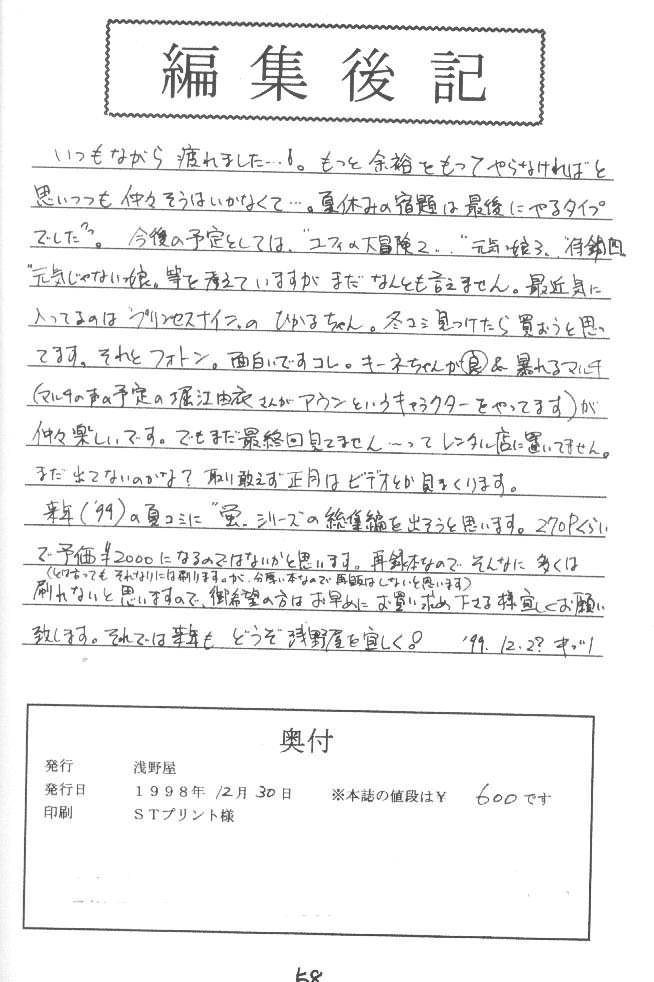 編集後記
いつもながら疲れました…。もっと余裕をもってやらなければと
思いつつも仲々そうはいかなくて…。夏休みの宿題は最後にやるタイプ
でした。今後の予定としては、"ユフィの大冒険2" "元気っ娘3"
"元気じゃないっ娘"等を考えていますがまだなんとも言えません。最近気に
入ってるのは"プリンセスナイン"のひかるちゃん。冬コミ見つけたら買おうと思っ
てます。それとフォトン。面白いですコレ。キーネちゃんが良&暴れるマルチ
(マルチの声の予定の堀江由衣さんがアウンというキャラクターをやってます)が
仲々楽しいです。でもまだ最終回見てません〜ってレンタル店に置いてません。
まだ出てないのかな?取り敢えず正月はビデオとか見まくります。
来年('99)の夏コミに"蛍"シリーズの総集編を出そうと思います。270Pくらい
で予価¥2000になるのではないかと思います。再録本なのでそんなに多くは
(とは言ってもそれなりには刷りますが、分厚い本なので再販はしないと思います)
刷れないと思いますので、御希望の方はお早めにお買い求め下さる様宜しくお願い
致します。それでは来年もどうぞ浅野屋を宜しく! '99.12.2?
奥付
発行 浅野屋
発行日 1998年 12月30日 ※本誌の値段は¥ 600です
印刷 STプリント様
58